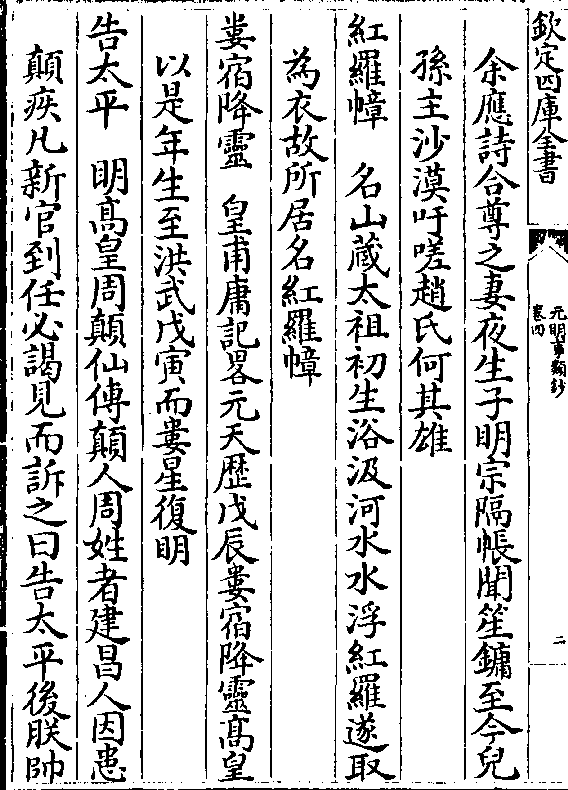 欽定四庫全書
元明事類鈔
卷四
二
余應詩合尊之妻夜生子明宗隔帳聞笙鏞至今兒
孫主沙漠吁嗟趙氏何其雄
紅羅幛　名山藏太祖初生浴汲河水水浮紅羅遂取
為衣故所居名紅羅幛
婁宿降靈　皇甫庸記畧元天歷戊辰婁宿降靈髙皇
以是年生至洪武戊寅而婁星復明
告太平　明髙皇周顛仙傳顛人周姓者建昌人因患
顛疾凡新官到任必謁見而訴之曰告太平後朕帥